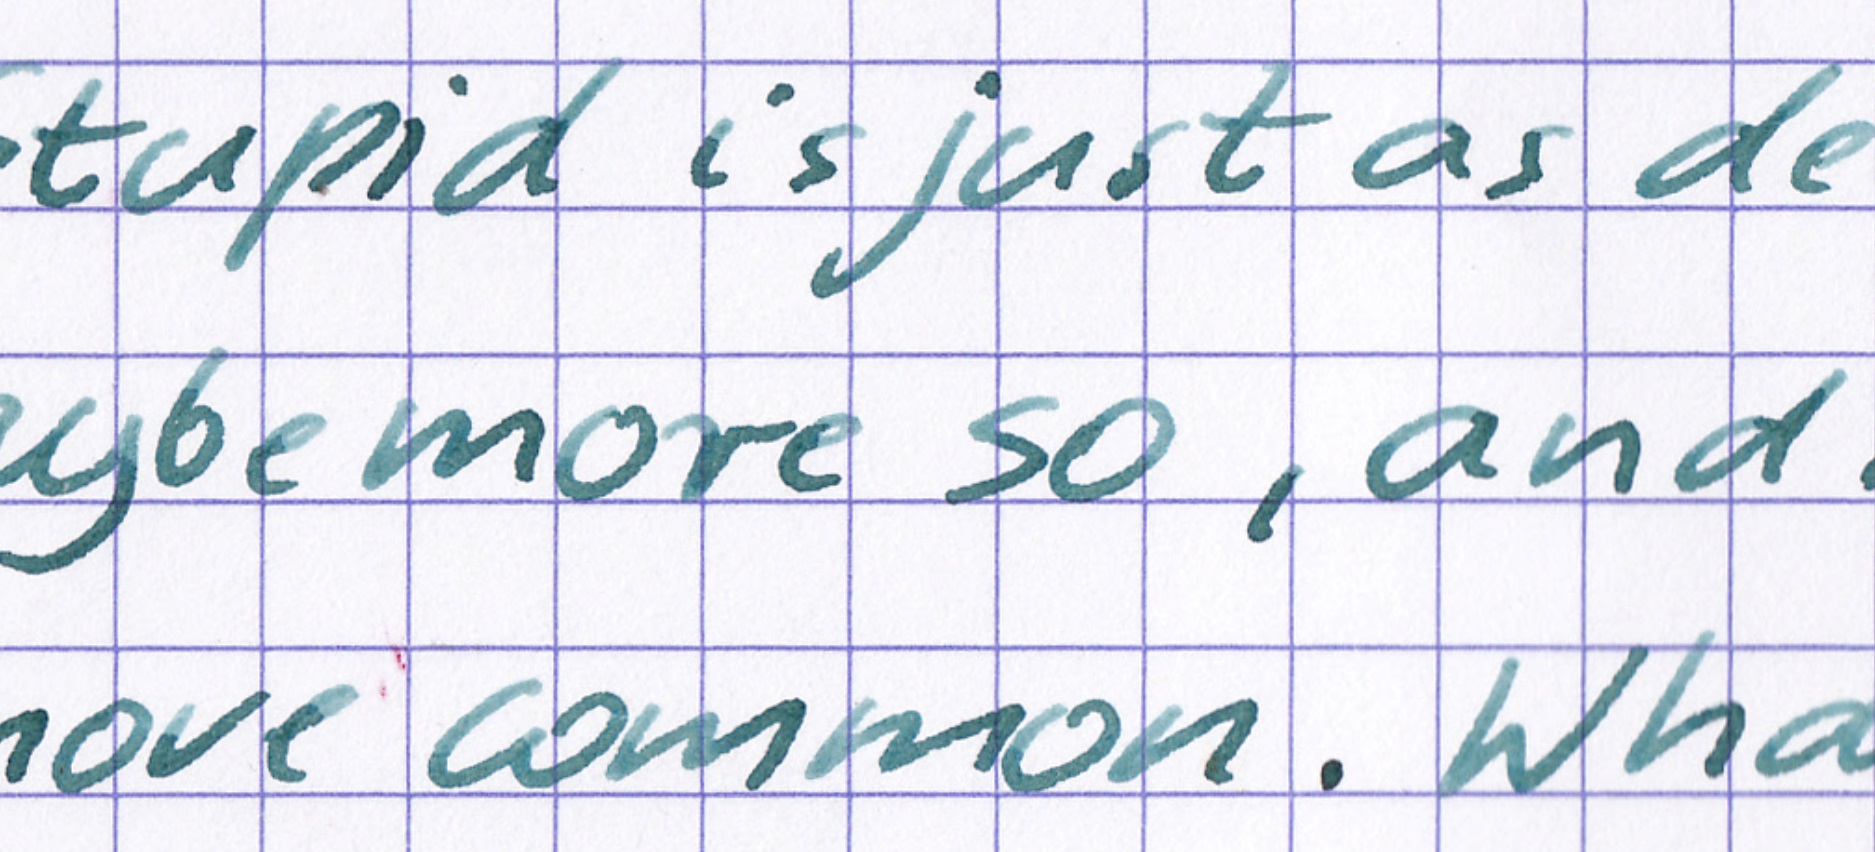 Stupid is just as de
aybe more so, and
more common. Wha